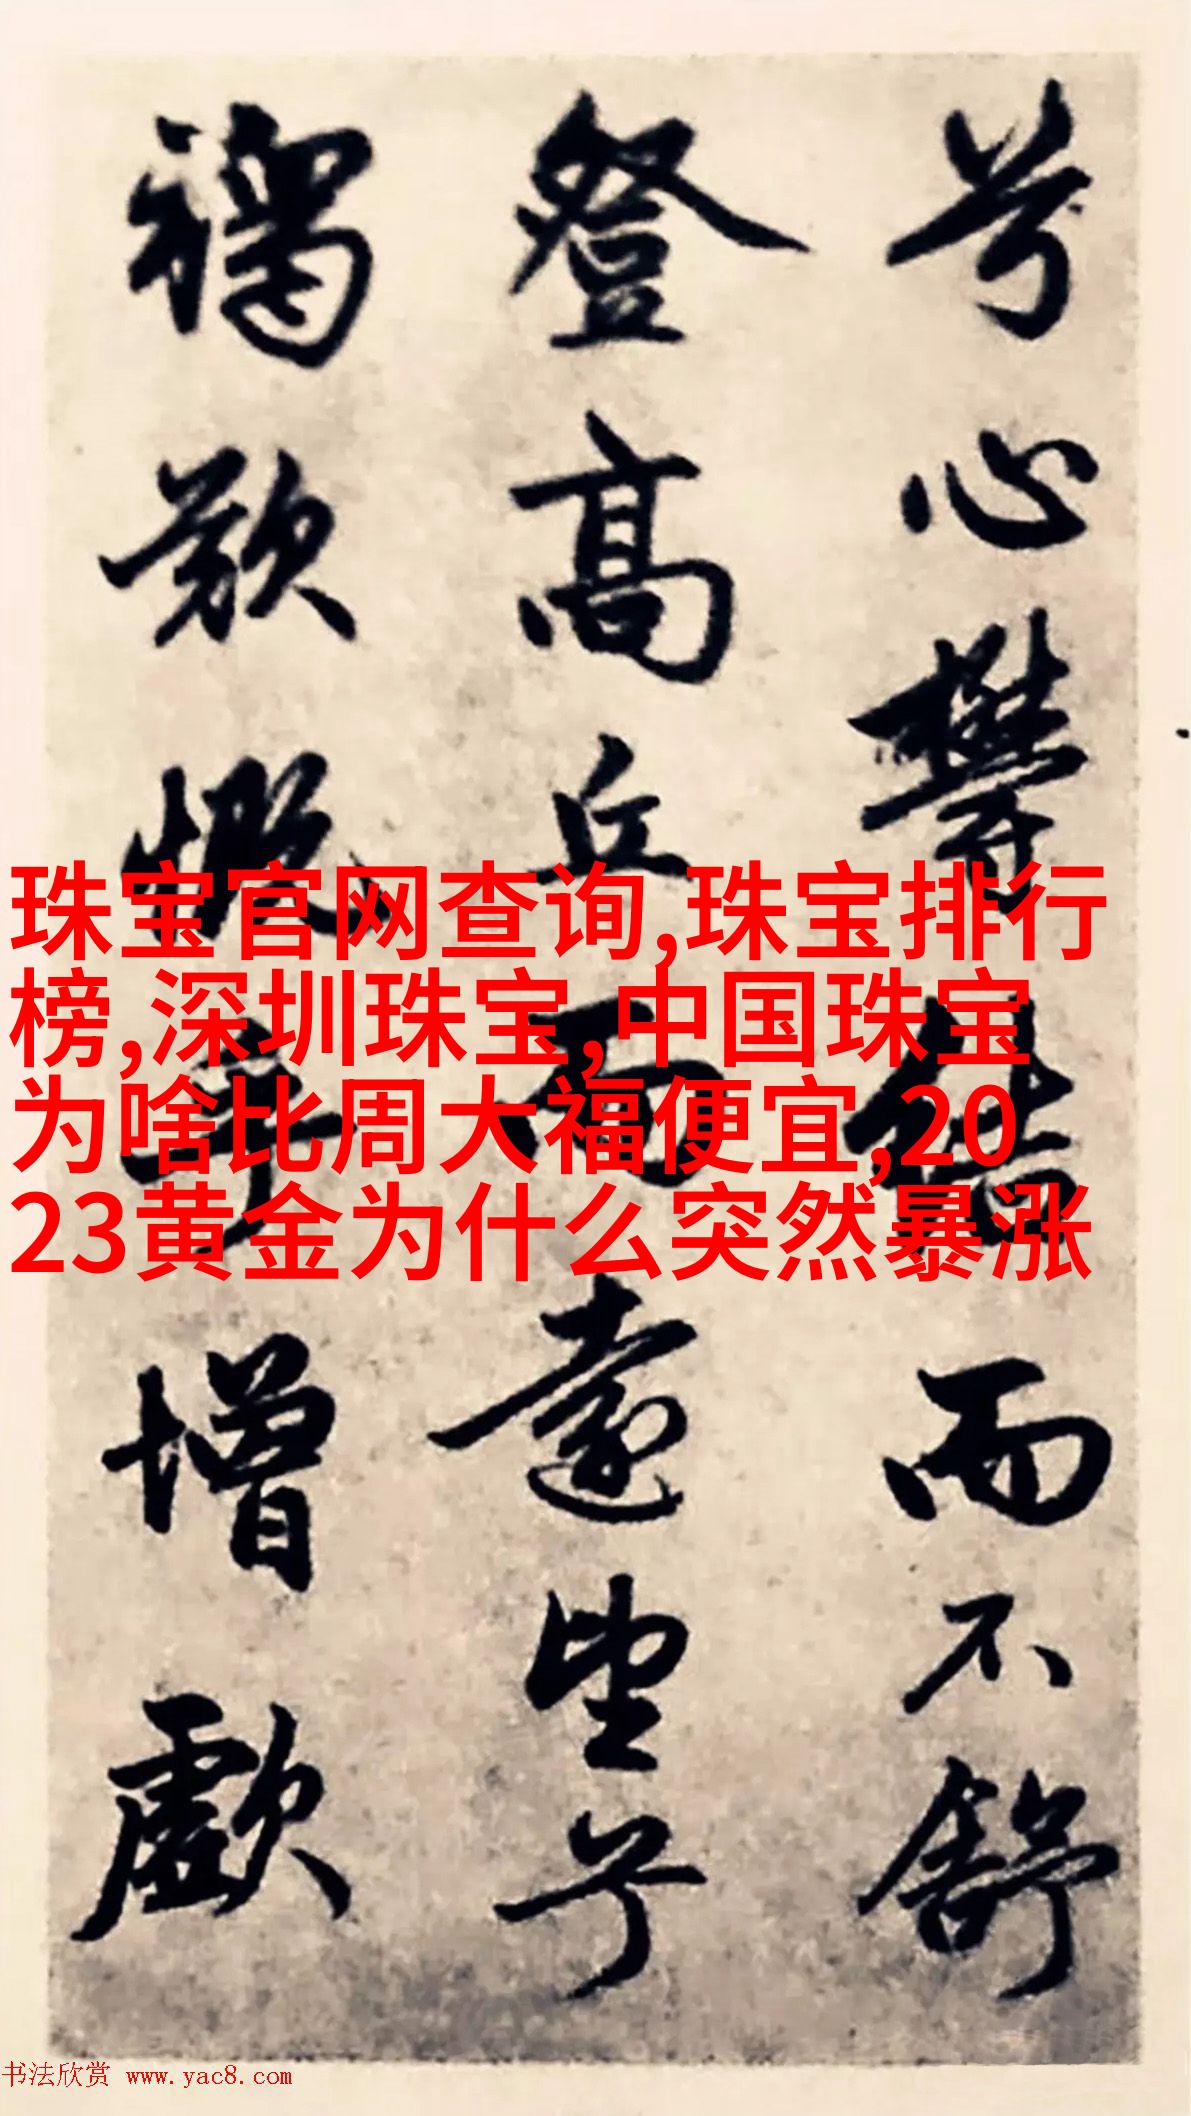 兮心欝結而不舒
登高丘而遠望兮
歎慨增歔
珠宝官网查询,珠宝排行
榜,深圳珠宝,中国珠宝
为啥比周大福便宜,20
23黄金为什么突然暴涨
书法欣赏 www.yac8.com